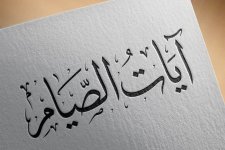 آيَاتُ الصِّيَام